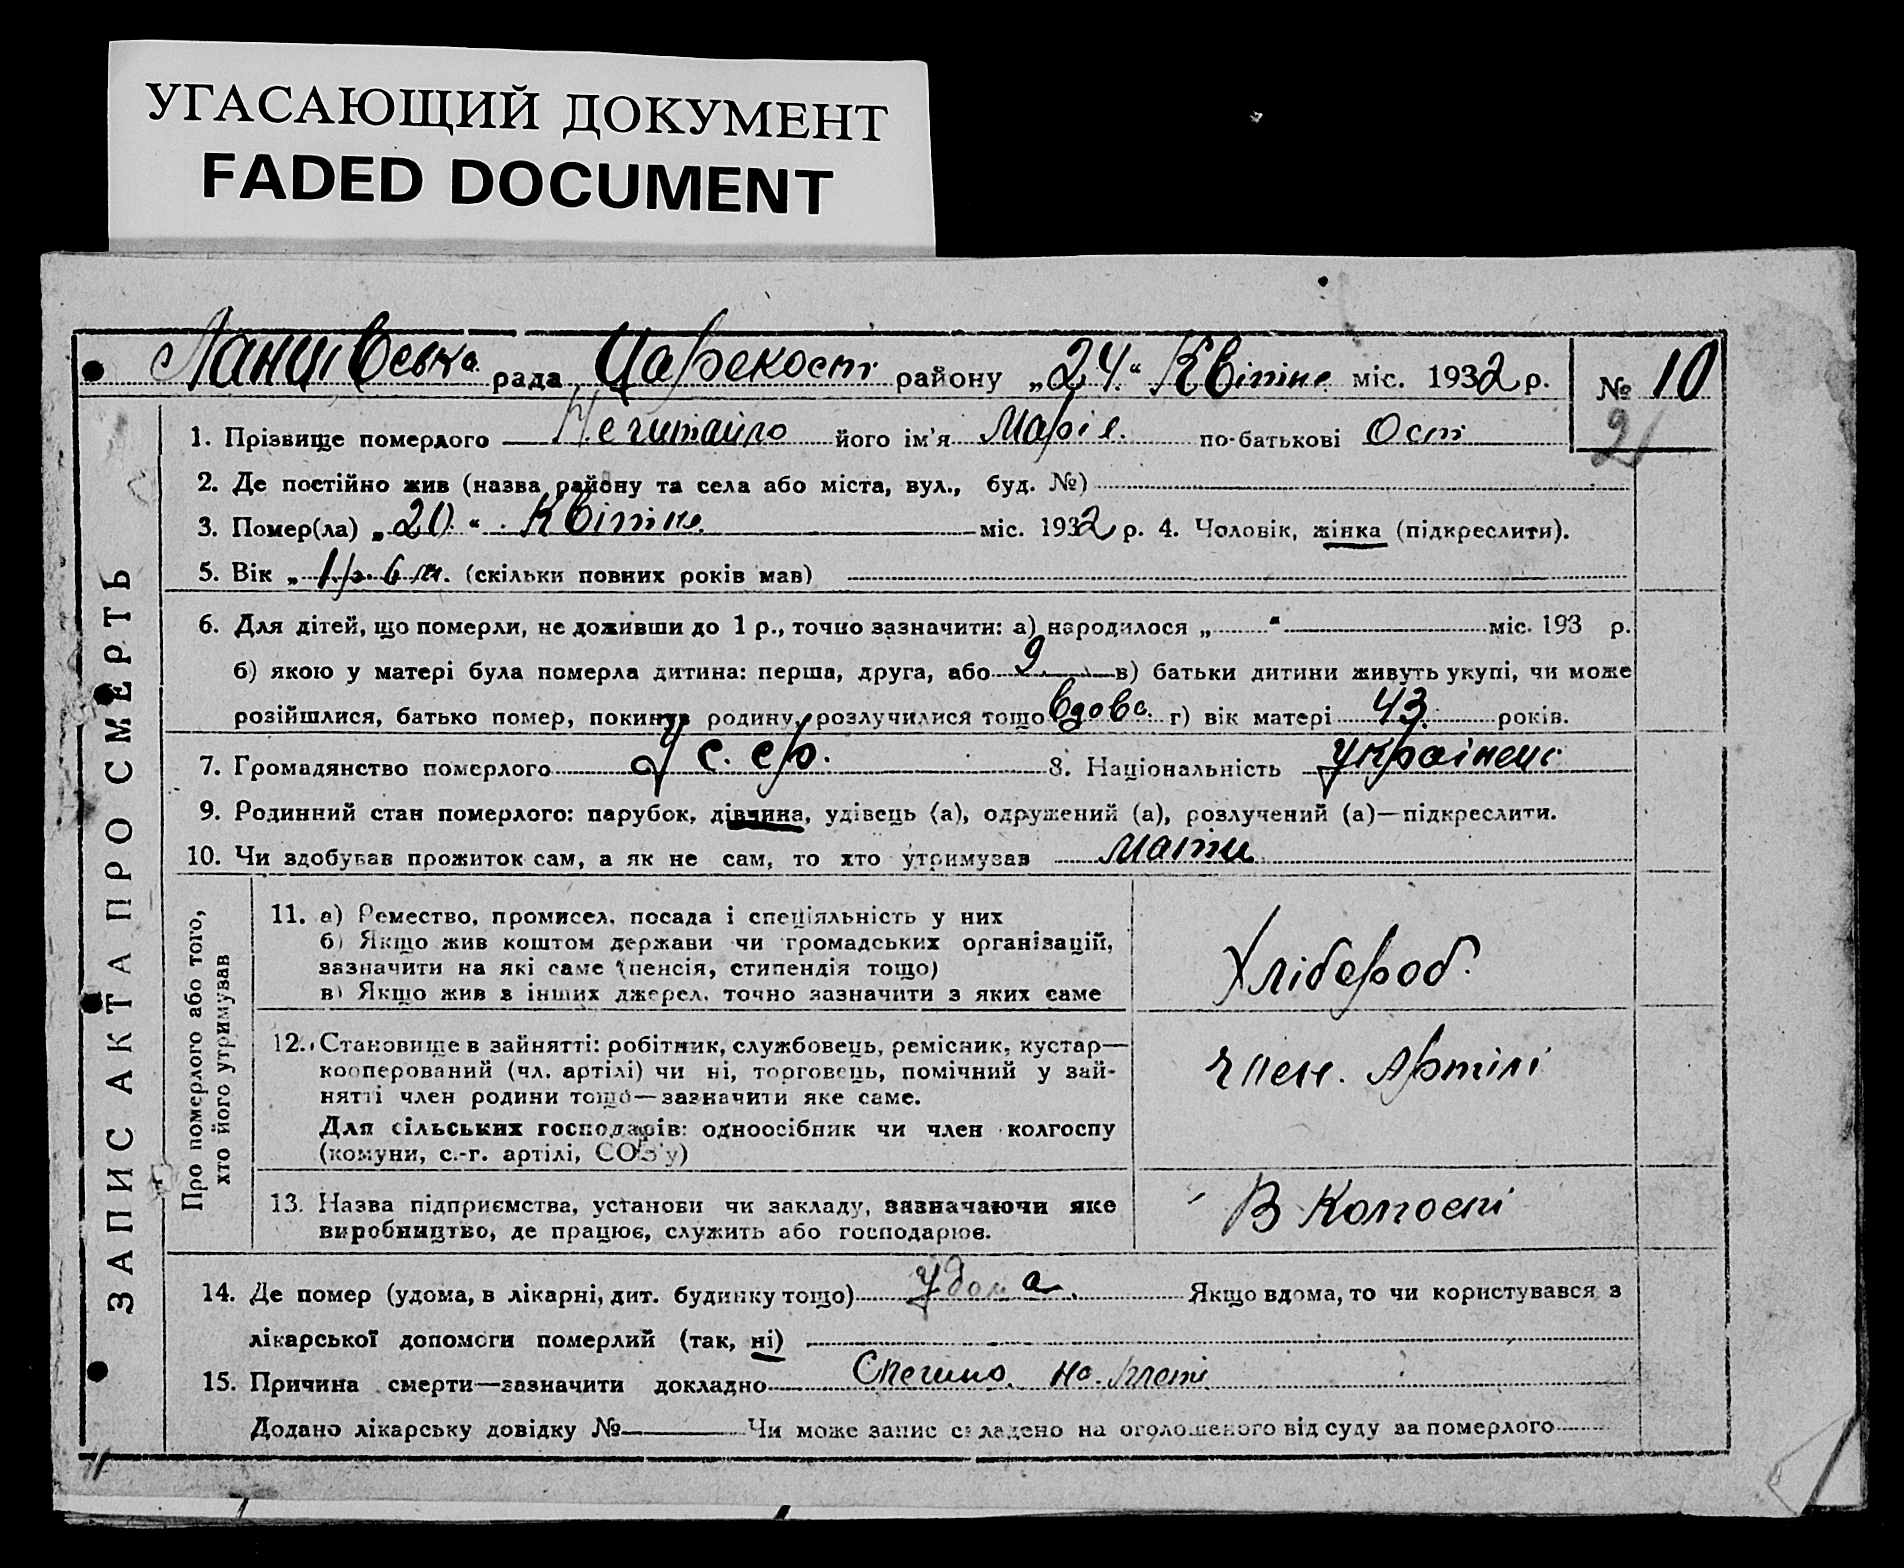 УГАСАЮЩИЙ ДОКУМЕНТ
FADED DOCUMENT
рада району „24“ Квітня міс. 1932 р. № 10
2
1. Прізвище померлого Нечитайло його ім'я Марія по-батькові Ост
2. Де постійно жив (назва району та села або міста, вул., буд. №)
3. Помер(ла) „20“ Квітня міс. 1932 р. 4. Чоловік, жінка (підкреслити).
5. Вік „1 р. 6 м. (скільки повних років мав)
6. Для дітей, що померли, не доживши до 1 р., точно зазначити: а) народилося „ “ міс. 193 р.
б) якою у матері була померла дитина: перша, друга, або 9 в) батьки дитини живуть укупі, чи може
розійшлися, батько помер, покинув родину, розлучилися тощо вдова г) вік матері 43 років.
7. Громадянство померлого У с. ср. 8. Національність
9. Родинний стан померлого: парубок, дівчина, удівець (а), одружений (а), розлучений (а)—підкреслити.
10. Чи здобував прожиток сам, а як не сам, то хто утримував мати
ЗАПИС АКТА ПРО СМЕРТЬ
Про померлого або того,
хто його утримував
11. а) Ремество, промисел, посада і спеціяльність у них
б) Якщо жив коштом держави чи громадських організацій,
зазначити на які саме (пенсія, стипендія тощо)
в) Якщо жив з інших джерел, точно зазначити з яких саме
Хлібороб.
12. Становище в зайнятті: робітник, службовець, ремісник, кустар—
кооперований (чл. артілі) чи ні, торговець, помічний у зай-
нятті член родини тощо—зазначити яке саме.
Для сільських господарів: одноосібник чи член колгоспу
(комуни, с.-г. артілі, СОЗ'у)
член. Артілі
13. Назва підприємства, установи чи закладу, зазначаючи яке
виробництво, де працює, служить або господарює.
В
14. Де помер (удома, в лікарні, дит. будинку тощо) удома. Якщо вдома, то чи користувався з
лікарської допомоги померлий (так, ні)
15. Причина смерти—зазначити докладно
Додано лікарську довідку № Чи може запис складено на оголошеного від суду за померлого